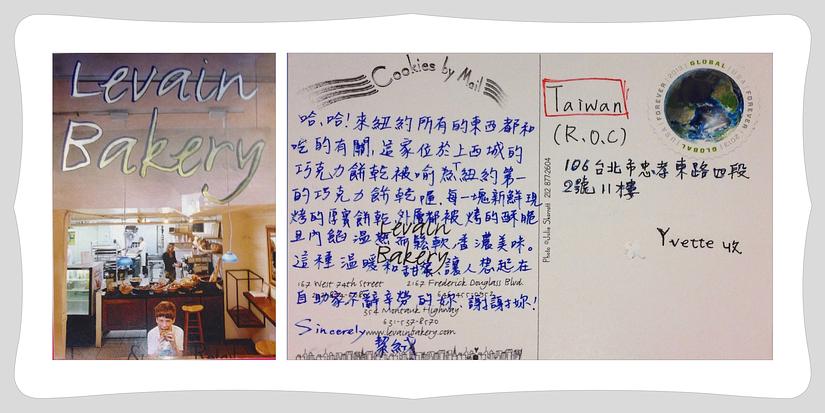 Levain
Bakery
Cookies by Mail
哈,哈!來紐約所有的東西都和
吃的有關,這家位於上西城的
巧克力餅乾被喻為紐約第一
的巧克力餅乾喔.每一塊新鮮現
烤的厚實餅乾,外層都被烤的酥脆
且內餡溫熱而鬆軟,香濃美味。
Levain
Bakery
這種溫暖和甜蜜讓人想起在
167 West 74th Street 2167 Frederick Douglass Blvd.
自助家不辭辛勞的妳,謝謝妳!
354 Montauk Highway
631-537-8570
Sincerely
www.levainbakery.com
Photo ©Julie Skarratt 212 877-2604
Taiwan
(R.O.C)
GLOBAL USA FOREVER 2013 GLOBAL USA FOREVER 2013
106台北市忠孝東路四段
2號11樓
Yvette 收